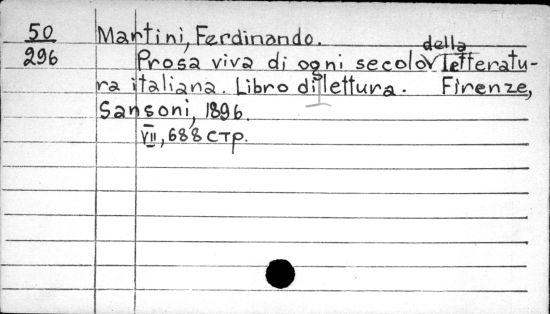 50 Martini, Ferdinando.
296 Prosa viva di ogni secolo della letteratu-
ra italiana. Libro di lettura. Firenze,
Sansoni, 1896.
VII, 688 стр.